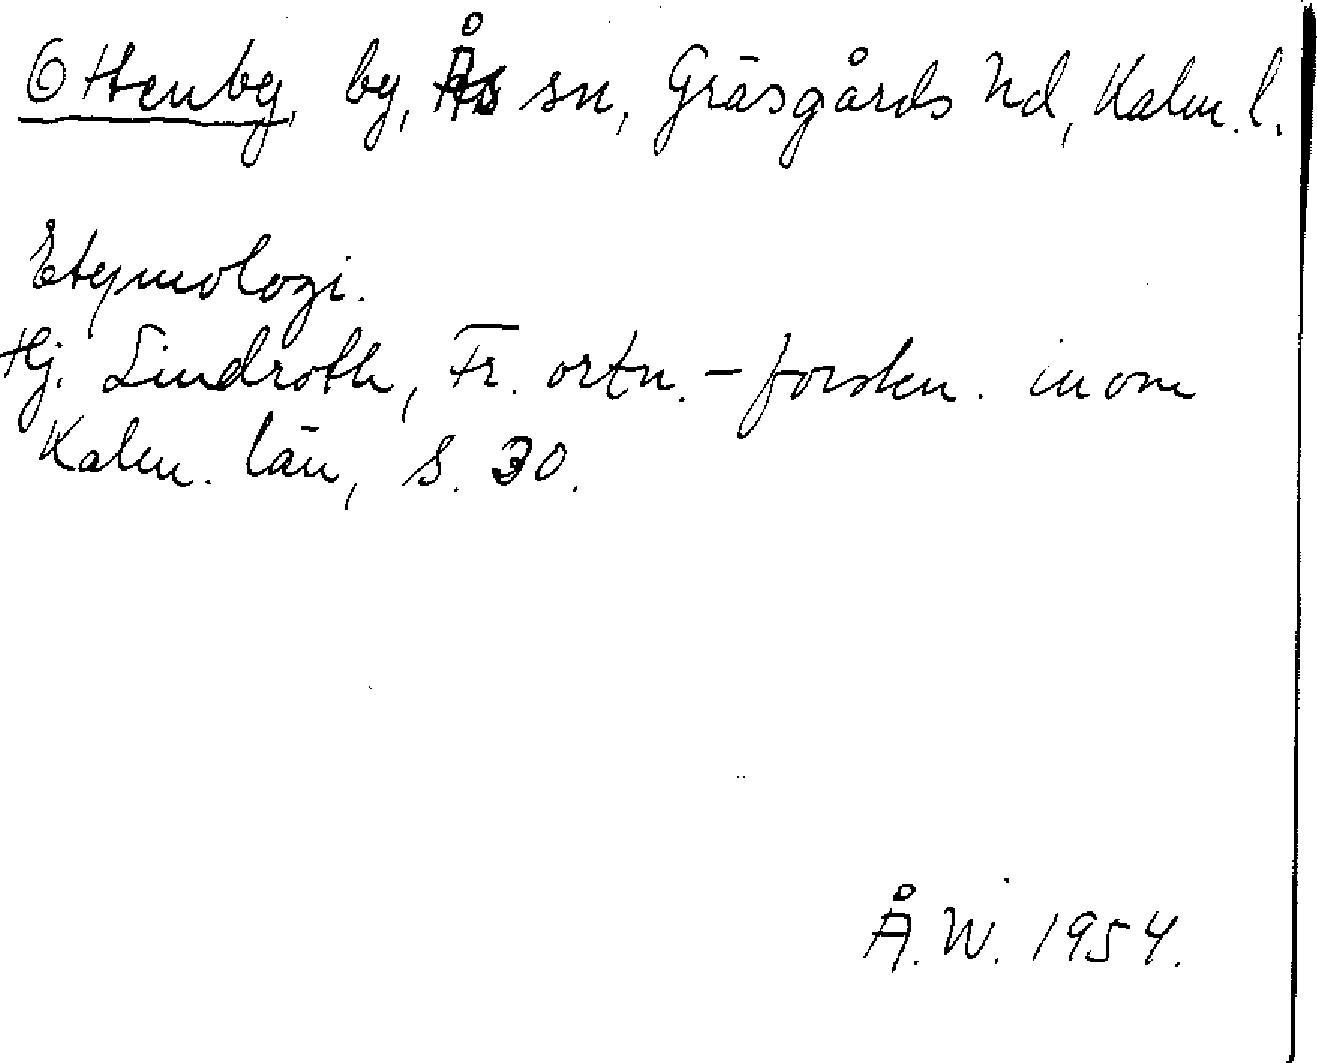 Ottenby, by, Ås sn, Gräsgårds hd, Kalm. l.
Etymologi.
Hj. Lindroth, Fr. ortn.-forskn. inom
Kalm. län, s. 30.
Å. W. 1954.